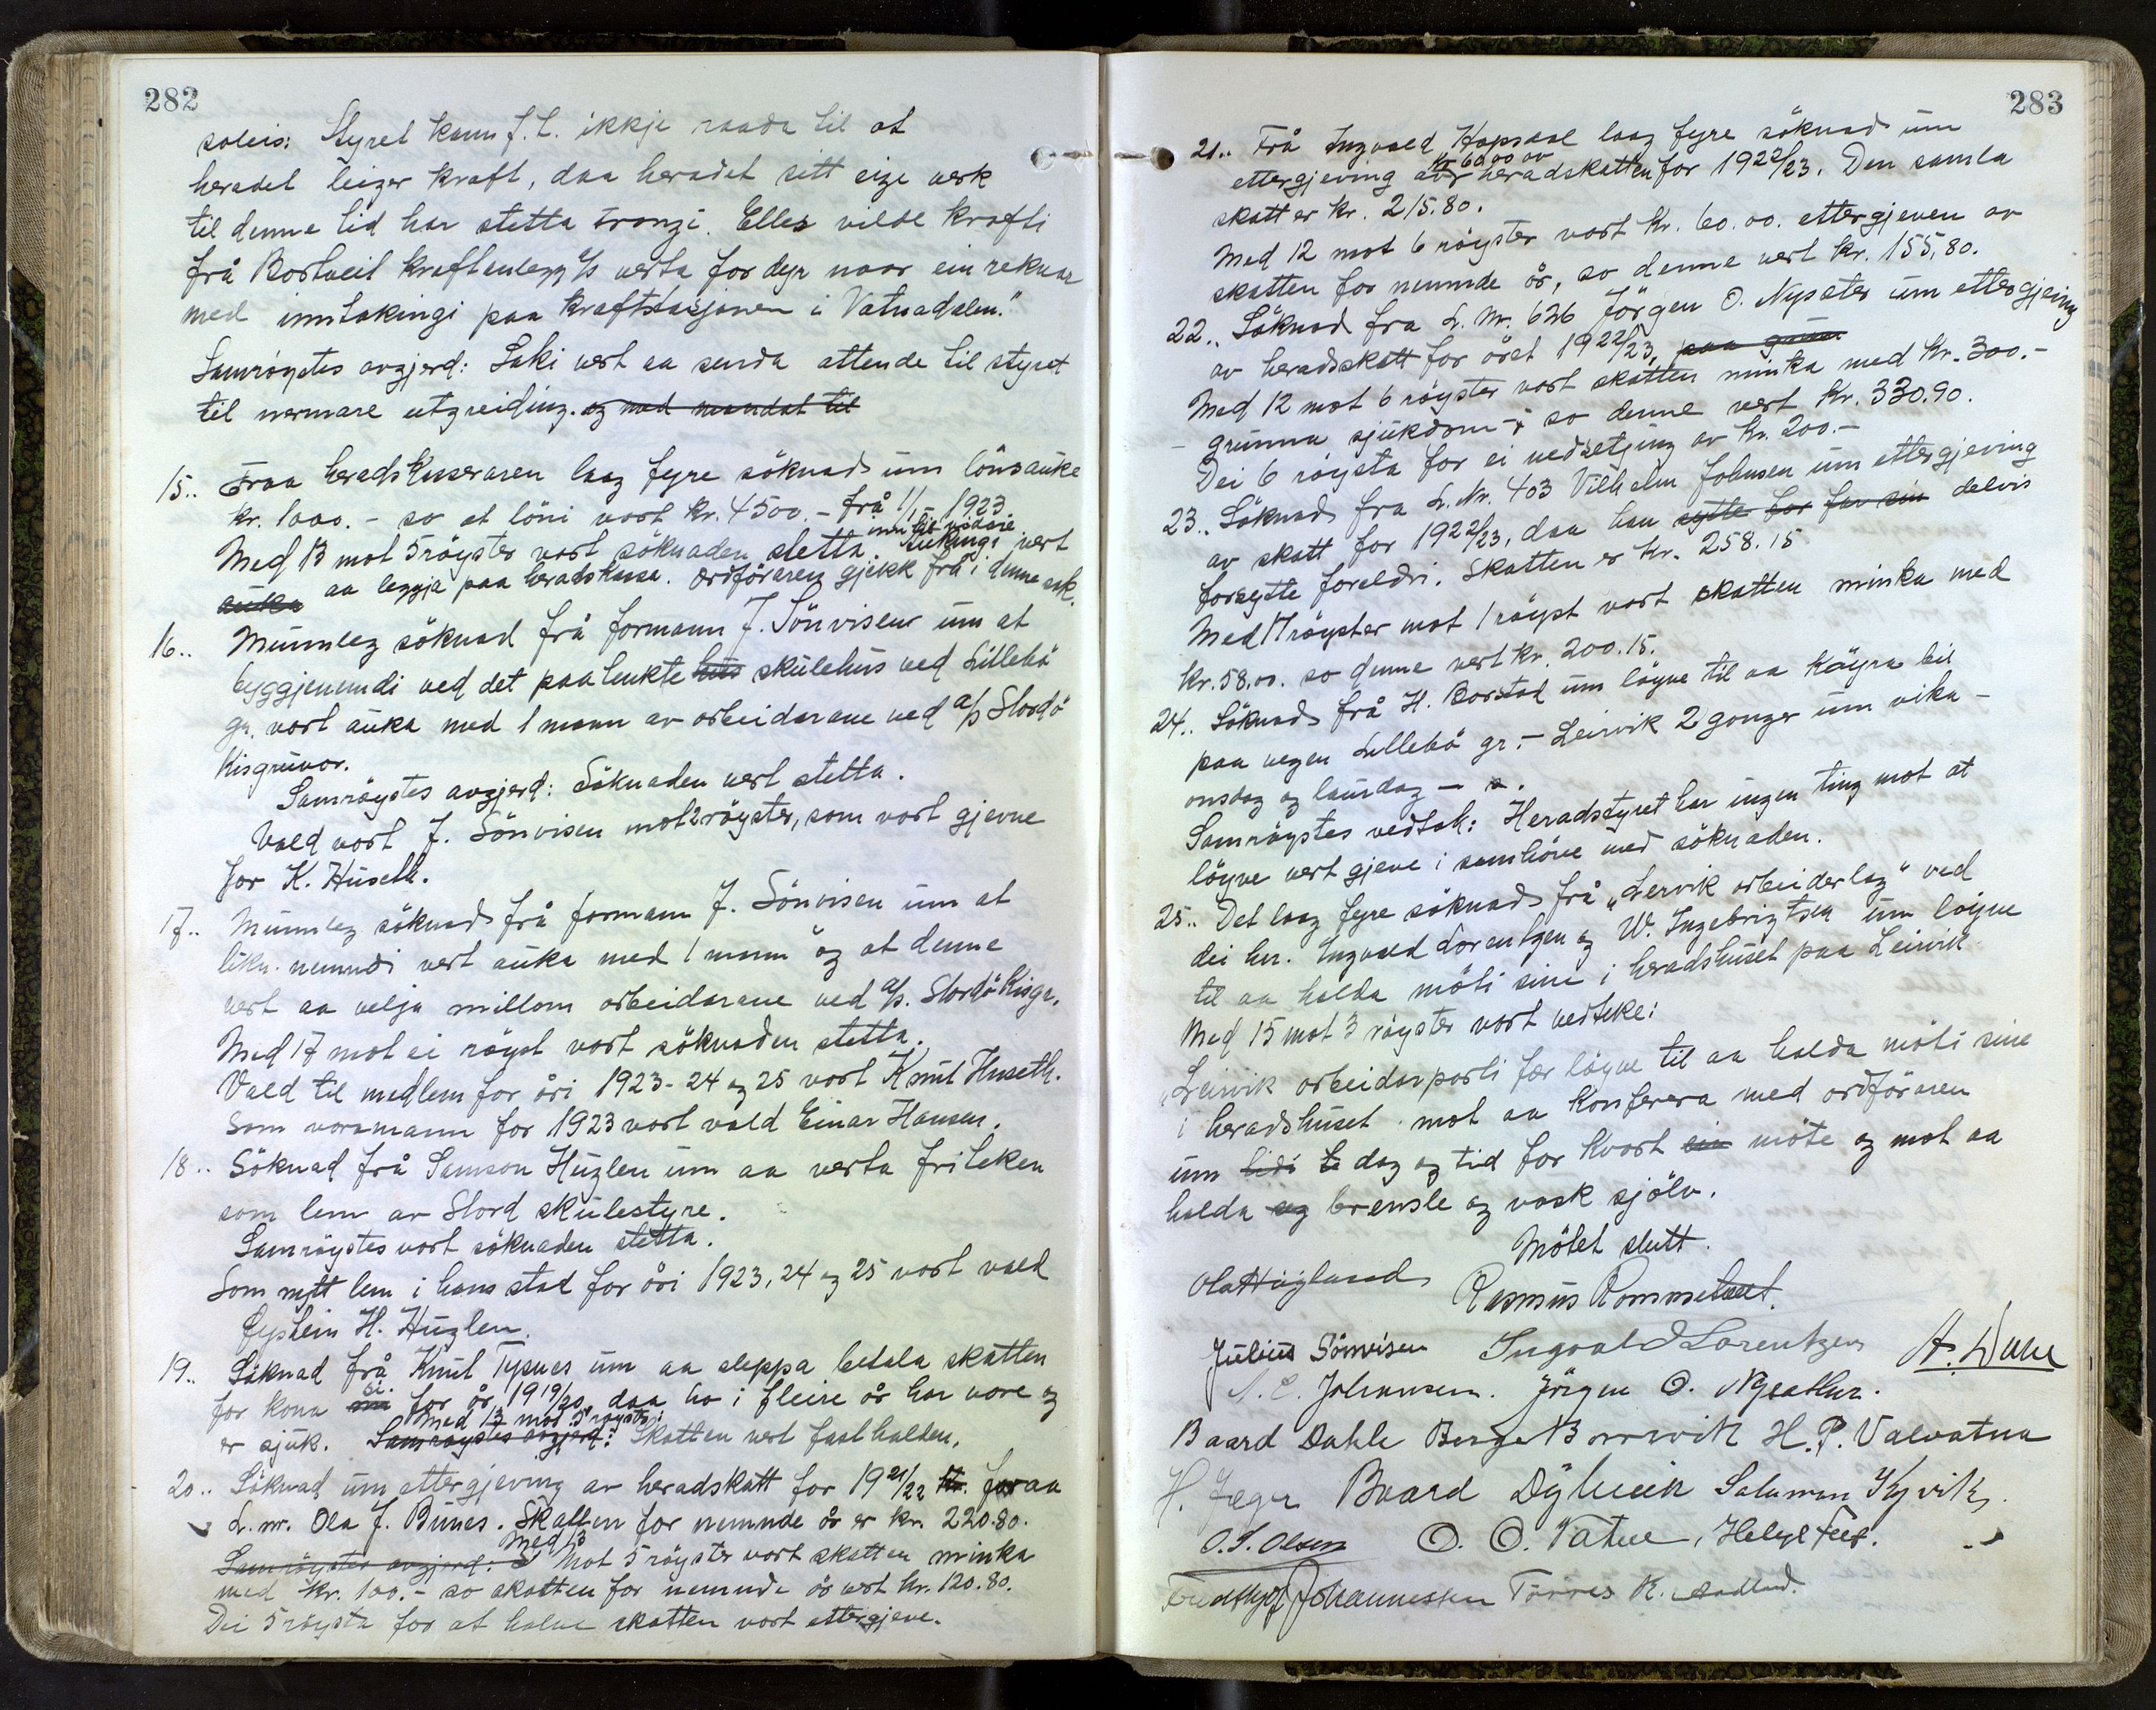 282
soleis: Styret kann f.t. ikkje raada til at
heradet leiger kraft, daa heradet sitt eige verk
til denne tid har stetta trongi. Elles vilde krafti
frå Bortveit kraftanlegg a/s verta for dyr naar ein reknar
med inntakingi paa kraftstasjonen i Vatnadalen."
Samröystes avgjerd: Saki vert aa senda attende til styret
til nermare utgreiding. og med mandat til
15.. Fraa heradskasseraren laag fyre söknad um lönsauke
kr. 1000.- so at löni vert kr. 4500.- frå 1/1 1923
inntil vidare
Med 13 mot 5 röyster vart söknaden stetta. Aukingi vert
auka aa leggja paa heradskassa. Ordföraren gjekk frå i denne sak.
16.. Munnleg söknad frå formann J. Sönvisen um at
byggjenemndi ved det paatenkte hus skulehus ved Lillebö
gr. vart auka med 1 mann av arbeidarane ved a/s Stordö
Kisgruvor.
Samröystes avgjerd: Söknaden vert stetta.
Vald vart J. Sönvisen mot 2 röyster, som vart gjevne
for K. Huseth.
17.. Munnleg söknad frå formann J. Sönvisen um at
likn. nemndi vert auka med 1 mann og at denne
vert aa velja millom arbeidarane ved a/s. Stordö Kisgr.
Med 17 mot ei röyst vart söknaden stetta.
Vald til medlem for åri 1923-24 og 25 vart Knut Huseth.
Som varamann for 1923 vart vald Einar Hansen.
18.. Söknad frå Samson Huglen um aa verta friteken
som lem av Stord skulestyre.
Samröystes vart söknaden stetta.
Som nytt lem i hans stad for åri 1923, 24 og 25 vart vald
Øystein H. Huglen.
19.. Söknad frå Knut Tysnes um aa sleppa betala skatten
si.
for kona for år 1919/20, daa ho i fleire år har vore og
Med 13 mot 5 röyster:
er sjuk. Samröystes avgjerd: Skatten vert fasthalden.
20.. Söknad um ettergjeving av heradskatt for 1921/22 kr. fraa
L. nr. Ola J. Bunes. Skatten for nemnde år er kr. 220.80.
Med 13
Samröystes avgjerd: mot 5 röyster vart skatten minka
med kr. 100.- so skatten for nemnde år vert kr. 120.80.
Dei 5 röysta for at halve skatten vart ettergjeve.
283
21.. Frå Ingvald Hopsdal laag fyre söknad um
kr 60.00 av
ettergjeving av heradskatten for 1922/23. Den samla
skatt er kr. 215.80.
Med 12 mot 6 röyster vart kr. 60.00. ettergjeven av
skatten for nemnde år, so denne vert kr. 155,80.
22.. Söknad fra L. Nr. 626 Jörgen O. Nysæter um ettergjeving
av heradsskatt for året 1922/23, paa grunn
Med 12 mot 6 röyster vart skatten minka med kr. 300.-
- grunna sjukdom - so denne vert kr. 330.90.
Dei 6 röysta for ei nedsetjing av kr. 200.-
23.. Söknad fra L. Nr. 403 Vilhelm Johnsen um ettergjeving
av skatt for 1922/23, daa han sytte for far sin delvis
forsytte foreldri. Skatten er kr. 258.15
Med 17 röyster mot 1 röyst vart skatten minka med
kr. 58.00. so denne vert kr. 200.15.
24.. Söknad frå H. Borstad um löyve til aa köyra bil
paa vegen Lillebö gr. - Leirvik 2 gonger um vika -
onsdag og laurdag -
Samröystes vedtak: Heradstyret har ingen ting mot at
löyve vert gjeve i samhöve med söknaden.
25.. Det laag fyre söknad frå "Lervik arbeiderlag" ved
dei hr. Ingvald Lorentzen og W. Ingebrigtsen um löyve
til aa halda möti sine i heradshuset paa Leirvik
Med 15 mot 3 röyster vart vedteke:
"Leirvik arbeidarparti fær löyve til aa halda möti sine
i heradshuset mot aa konferera med ordföraren
um tidi te dag og tid for kvart sin möte og mot aa
halda seg brensle og vask sjölv.
Mötet slutt.
Ola Höyland Rasmus Rommetveit.
Julius Sönvisen Ingvald Lorentzen A. Dale
N. E. Johannsen. Jörgen O. Nysæther.
Baard Dahle Berge Borrevik H. P. Valvatna
H. Jæger Baard Dyvik Salamon Kyvik.
O. S. Olsen O. O. Vatne, Helge Fed.
Fredthjof Johannessen Torres K. Aadland.